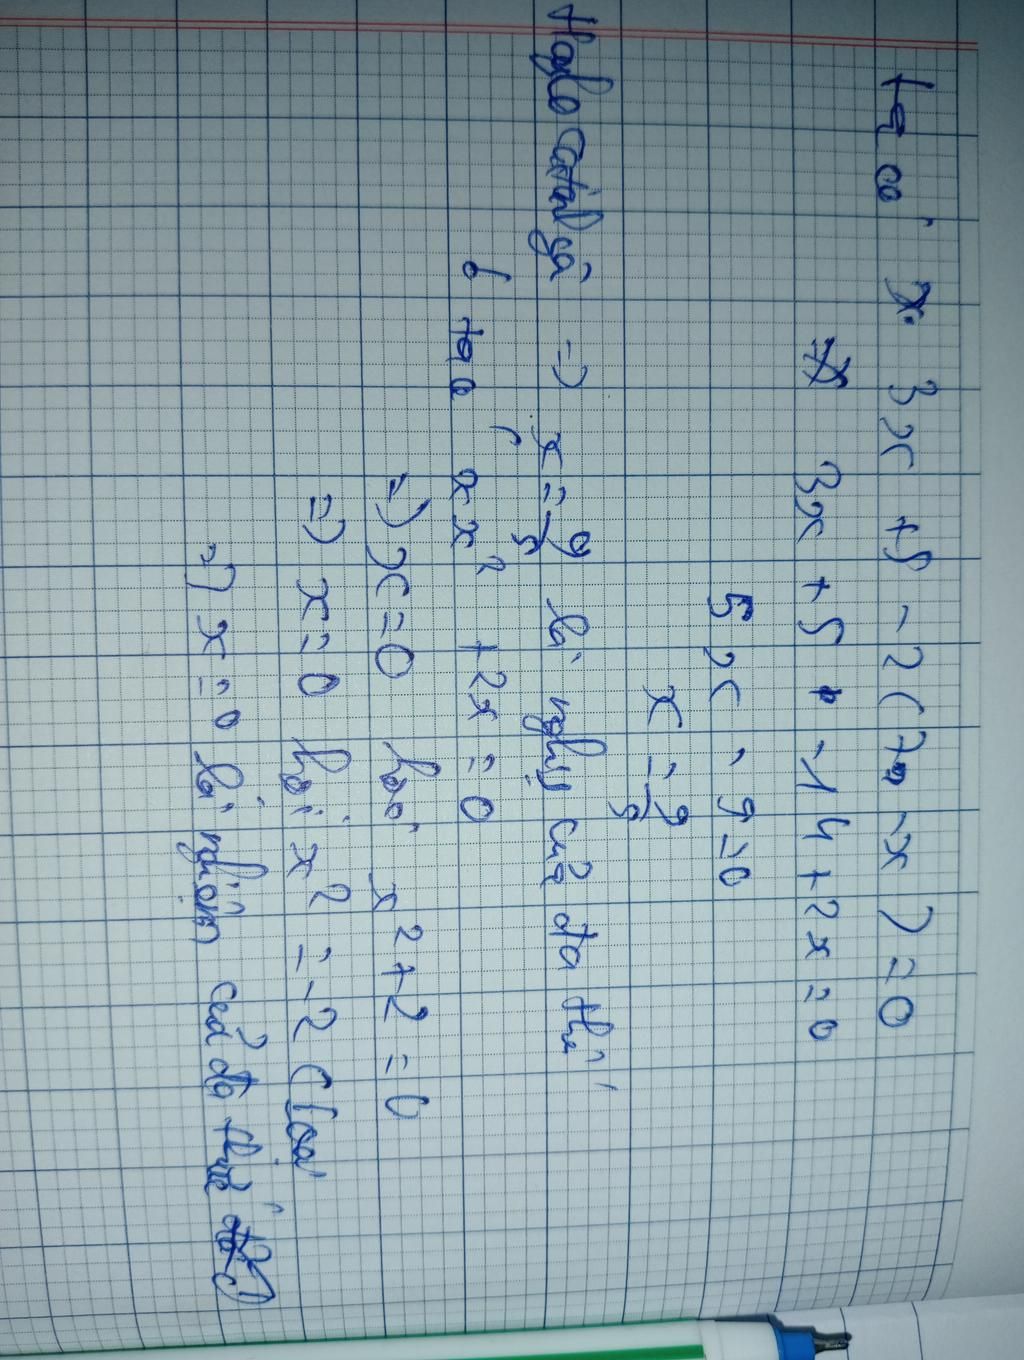 Ta có x. 3x + 5 - 2(7 - x) = 0
3x + 5 - 14 + 2x = 0
5x - 9 = 0
x = 9/5
=> x = 9/5 là nghị của đa thứ
b ta có x x² + 2x = 0
=> x = 0 hoặc x² + 2 = 0
=> x = 0 hoặ x² = -2 (loại
=> x = 0 là nghiệm của đa thức